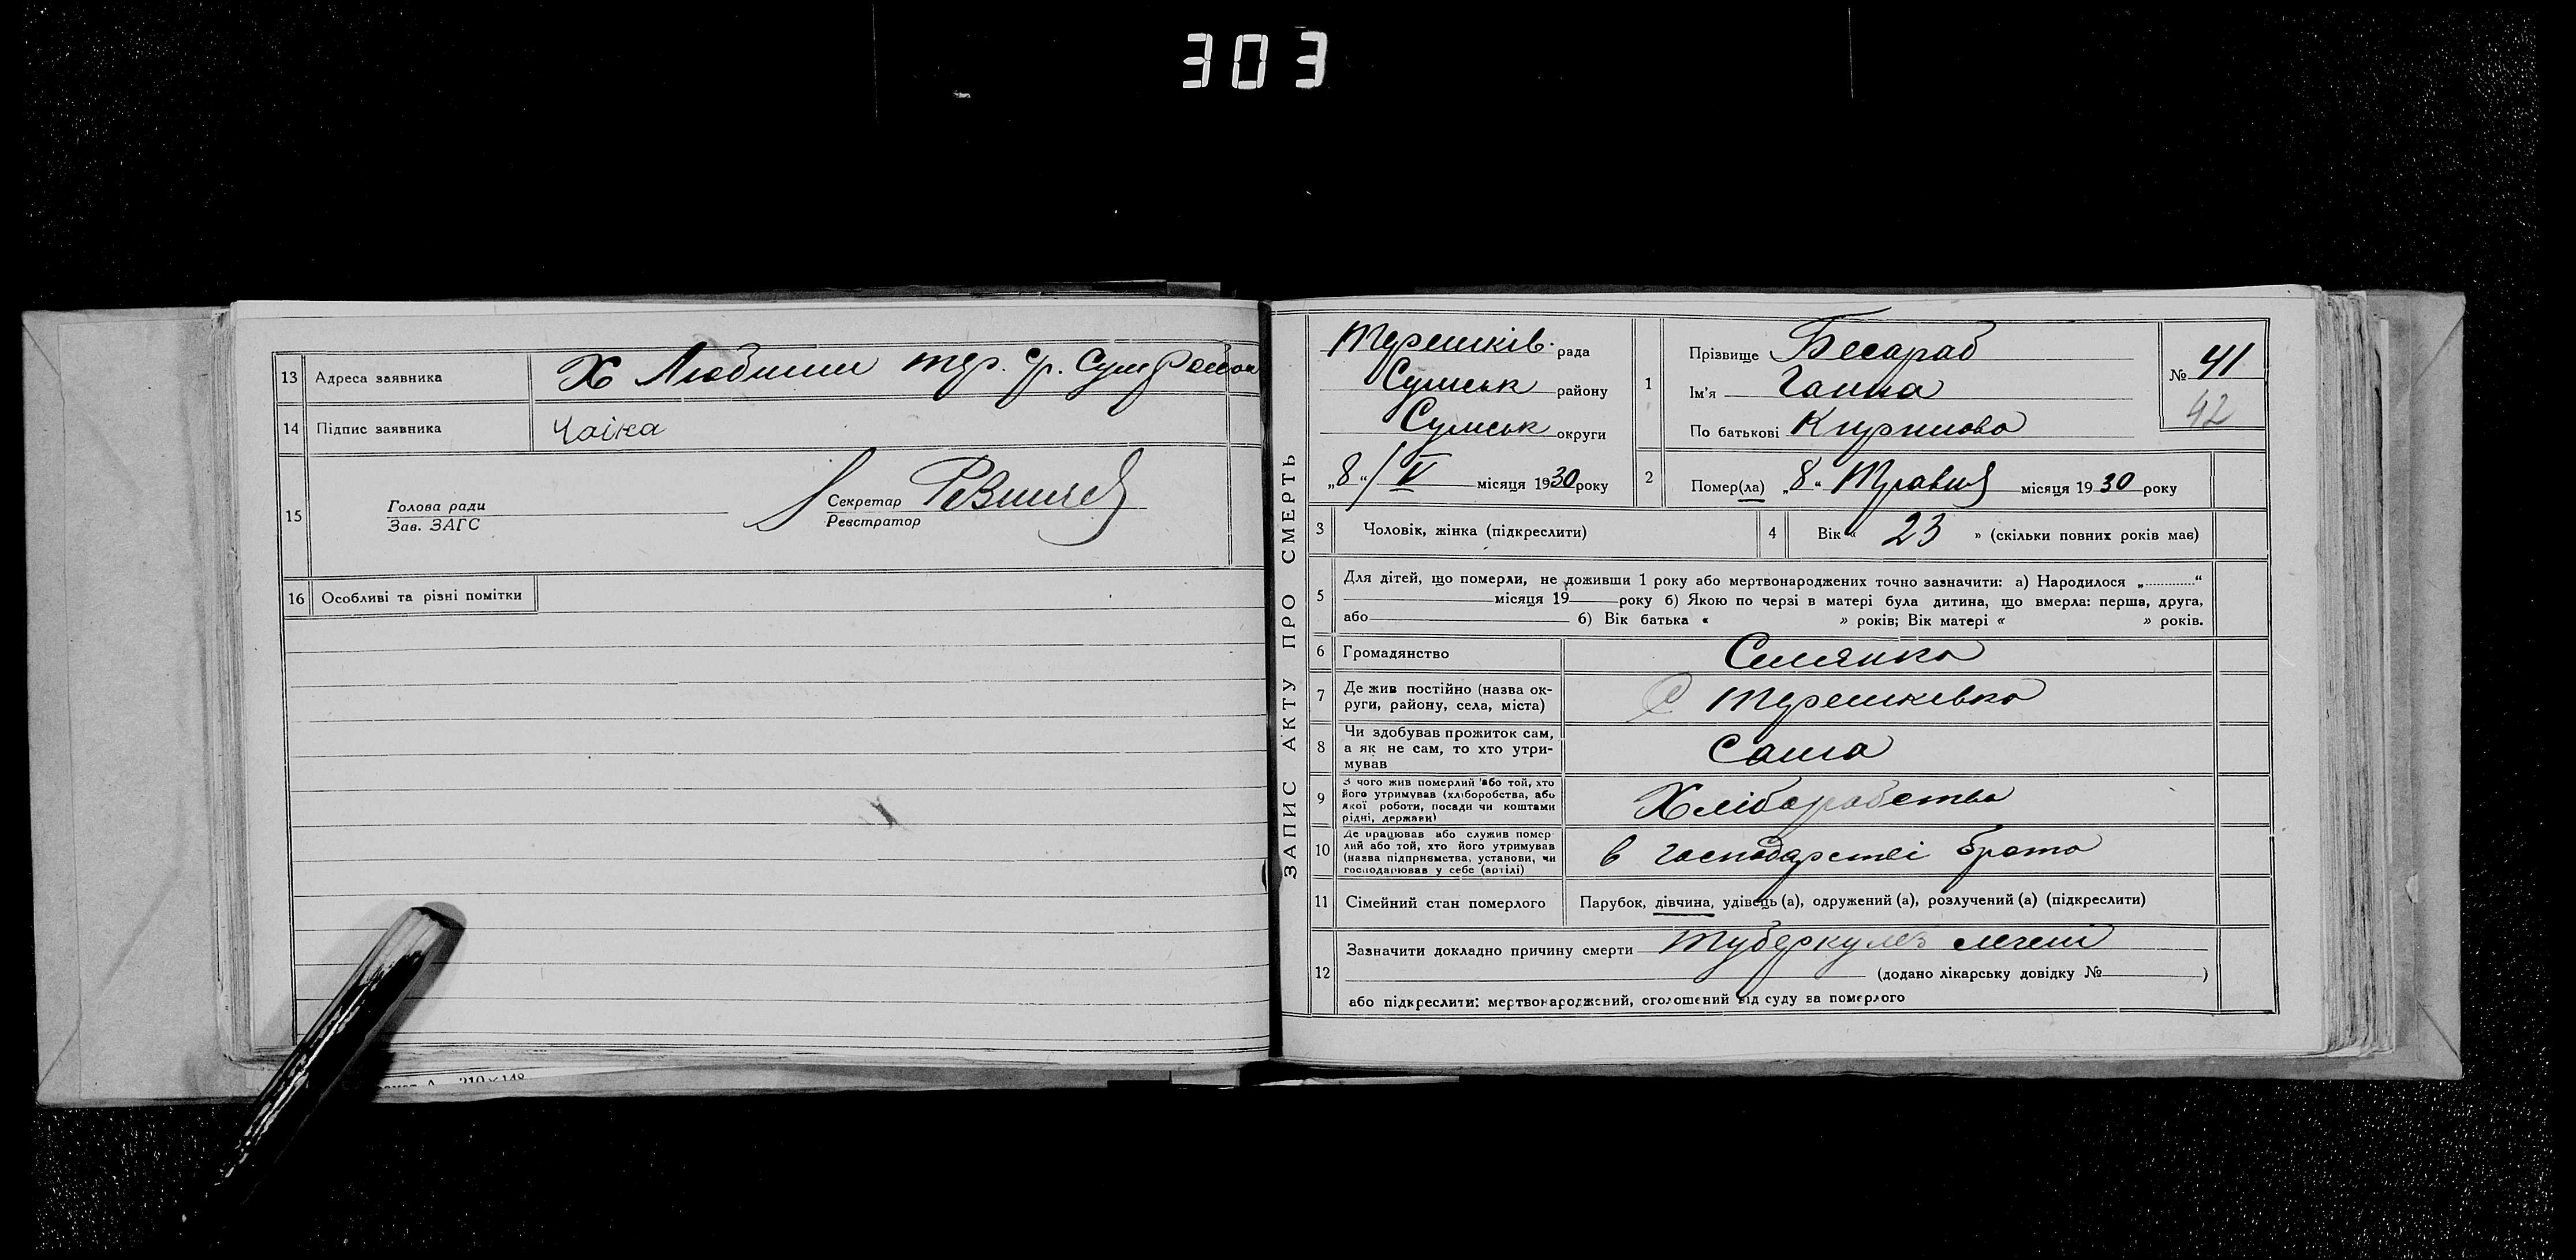 303
13 Адреса заявника Х Любиши тер. с/р. Сум района
14 Підпис заявника Чаіка
15 Голова ради
Зав. ЗАГС
Секретар
Реєстратор
16 Особливі та різні помітки
210×148
ЗАПИС АКТУ ПРО СМЕРТЬ
Терешків. рада
Сумськ району
Сумськ округи
„8“/V місяця 1930 року
1 Прізвище Бесараб
Ім'я Ганна
По батькові Кирилова
№ 41
42
2 Помер(ла) „8“ Травня місяця 1930 року
3 Чоловік, жінка (підкреслити)
4 Вік « 23 » (скільки повних років має)
5 Для дітей, що померли, не доживши 1 року або мертвонароджених точно зазначити: а) Народилося „ “
місяця 19 року б) Якою по черзі в матері була дитина, що вмерла: перша, друга,
або б) Вік батька « » років; Вік матері « » років.
6 Громадянство Селянка
7 Де жив постійно (назва ок-
руги, району, села, міста) С Терешківка
8 Чи здобував прожиток сам,
а як не сам, то хто утри-
мував Сама
9 З чого жив померлий або той, хто
його утримував (хліборобства, або
якої роботи, посади чи коштами
рідні, держави) Хліборобства
10 Де працював або служив помер
лий або той, хто його утримував
(назва підприємства, установи, чи
господарював у себе (артілі) в господарстві брата
11 Сімейний стан померлого Парубок, дівчина, удівець (а), одружений (а), розлучений (а) (підкреслити)
12 Зазначити докладно причину смерти Туберкулез легені
(додано лікарську довідку № )
або підкреслити: мертвонароджений, оголошений від суду за померлого